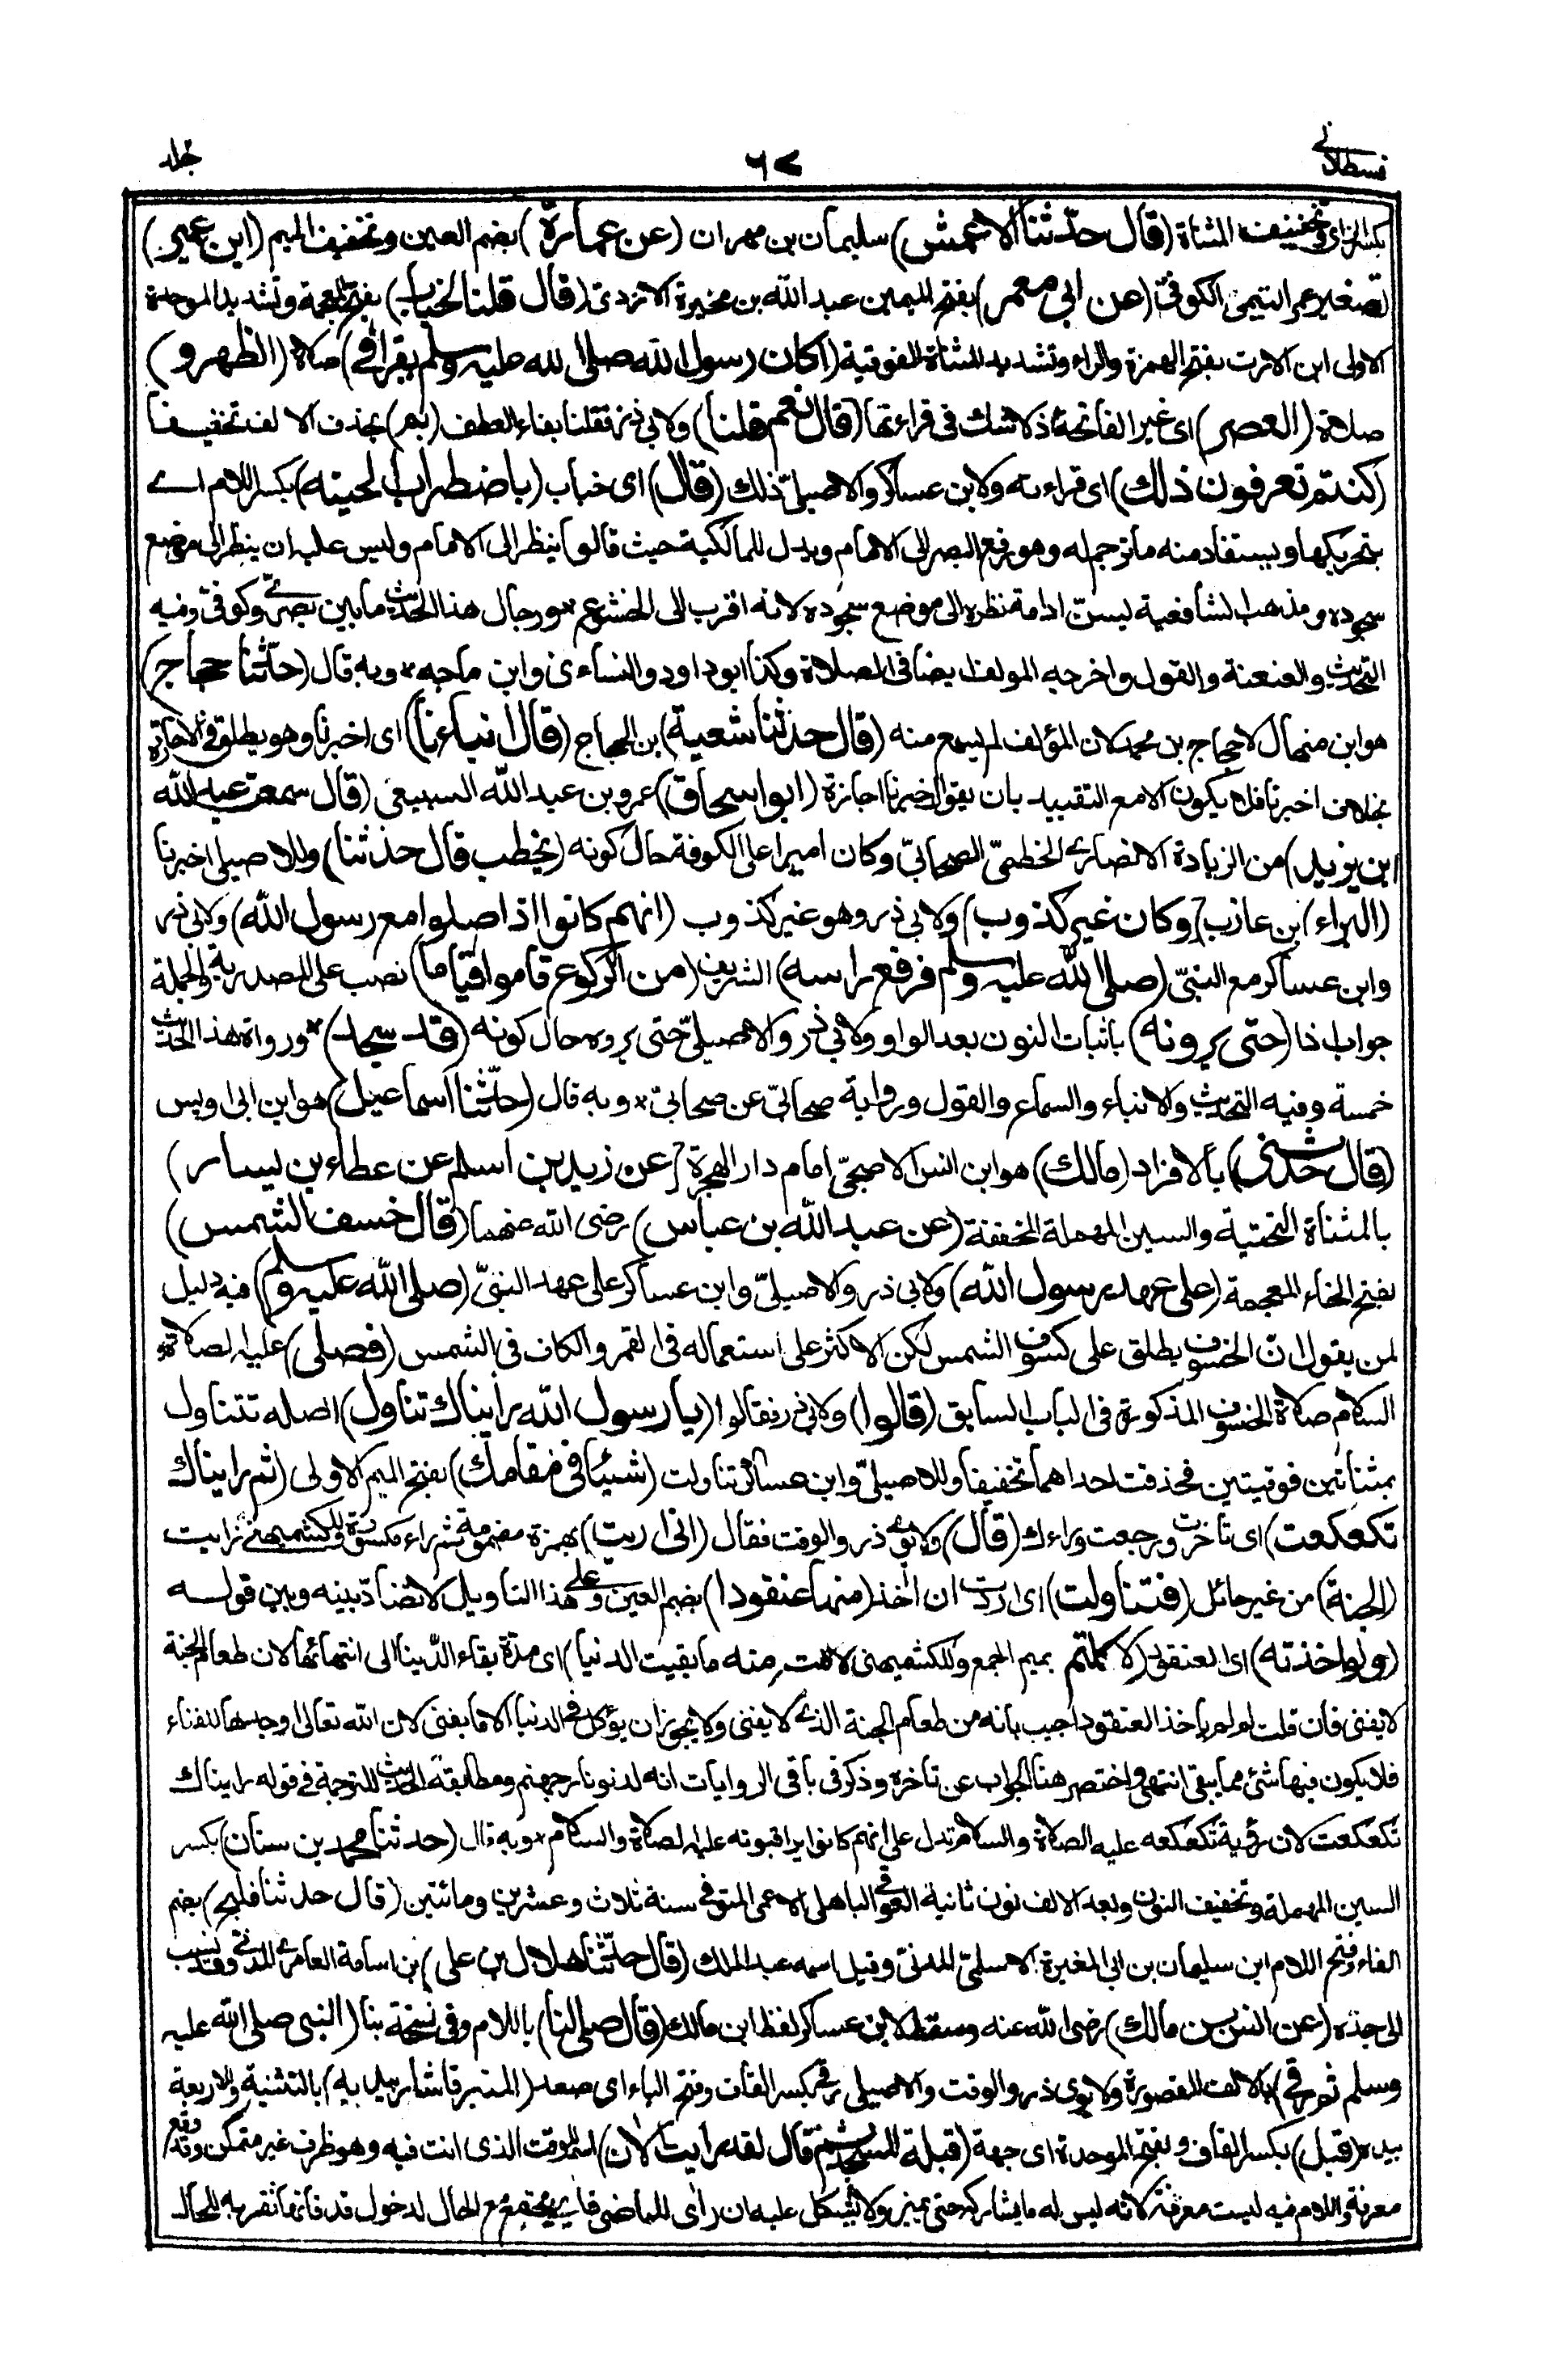 قسطلانى
٦٧
جلد
بكسر الزاى وتخفيف المثناة (قال حدّثنا الاعمش) سليمان بن مهران (عن عمارة) بضم العين وتخفيف الميم (ابن عمير)
تصغير عمر التيمى الكوفىّ (عن ابى معمر) بفتح الميمين عبد الله بن مخبرة الازدىّ (قال قلنا لخباب) بفتح المعجمة وتشديد الموحدة
الاولى ابن الارت بفتح الهمزة والراء وتشديد المثناة الفوقية (اكان رسول الله صلى الله عليه وسلم يقرا فى) صلاة (الظهر و)
صلاة (العصر) اى غير الفاتحة اذ لا شك فى قراءتها (قال نعم قلنا) ولابى ذر فقلنا بفاء العطف (بم) بحذف الالف تخفيفا
(كنتم تعرفون ذلك) اى قراءته ولابن عساكر والاصيلىّ ذلك (قال) اى خباب (باضطراب لحيته) بكسر اللام اے
بتحريكها ويستفاد منه ما ترجم له وهو رفع البصر الى الامام ويدل للمالكية حيث قالوا ينظر الى الامام وليس عليه ان ينظر الى موضع
سجوده ومذهب الشافعية يسنّ ادامة نظره الى موضع سجوده لانه اقرب الى الخشوع * ورجال هذا الحديث ما بين بصرىّ وكوفىّ وفيه
التحديث والعنعنة والقول واخرجه المولف ايضا فى الصلاة وكذا ابو داود والنساءى وابن ماجه * وبه قال (حدّثنا حجاج)
هو ابن منهال لا حجاج بن محمد لان المؤلف لم يسمع منه (قال حدثنا شعبة) بن الحجاج (قال انباءنا) اى اخبرنا وهو يطلق فى الاجازة
بخلاف اخبرنا فلا يكون الا مع التقييد بان يقول اخبرنا اجازة (ابو اسحاق) عمرو بن عبد الله السبيعى (قال سمعت عبد الله
ابن يزيد) من الزيادة الانصارے الخطمىّ الصحابىّ وكان اميرا على الكوفة حال كونه (يخطب قال حدثنا) وللاصيلى اخبرنا
(البراء) بن عازب (وكان غير كذوب) ولابى ذر وهو غير كذوب (انهم كانوا اذا صلوا مع رسول الله) ولابى ذر
وابن عساكر مع النبىّ (صلى الله عليه وسلم فرفع راسه) الشريف (من الركوع قاموا قياما) نصب على المصدرية والجملة
جواب اذا (حتى يرونه) باثبات النون بعد الواو ولابى ذر والاصيلىّ حتى يروه حال كونه (قد سجد) * ورواة هذا الحديث
خمسة وفيه التحديث والانباء والسماع والقول ورواية صحابىّ عن صحابىّ * وبه قال (حدّثنا اسماعيل) هو ابن ابى اويس
(قال حدثنى) بالافراد (مالك) هو ابن انس الاصبحىّ امام دار الهجرة (عن زيد بن اسلم عن عطاء بن يسار)
بالمثناة التحتية والسين المهملة المخففة (عن عبد الله بن عباس) رضى الله عنهما (قال خسف الشمس)
بفتح الخاء المعجمة (على عهد رسول الله) ولابى ذر والاصيلىّ وابن عساكر على عهد النبىّ (صلى الله عليه وسلم) فيه دليل
لمن يقول انّ الخسوف يطلق على كسوف الشمس لكن الاكثر على استعماله فى القمر والكاف فى الشمس (فصلى) عليه الصلاة و
السلام صلاة الخسوف المذكورة فى الباب السابق (قالوا) ولابى ذر فقالوا (يا رسول الله رايناك تناول) اصله تتناول
بمثناتين فوقيتين فحذفت احداهما تخفيفا وللاصيلىّ وابن عساكر تناولت (شيئا فى مقامك) بفتح الميم الاولى (ثم رايناك
تكعكعت) اى تاخرت ورجعت وراءك (قال) ولابوى ذر والوقت فقال (انى اريت) بهمزة مضمومة ثم راء مكسورة وللكشميهنى رايت
(الجنة) من غير حائل (فتناولت) اى اردت ان اخذ (منها عنقودا) بضم العين وعلى هذا التاويل لا تضادّ بينه وبين قوله
(ولو اخذته) اى العنقود (لاكلتم) بميم الجمع وللكشميهنى لاكلت (منه ما بقيت الدنيا) اى مدّة بقاء الدّنيا الى انتهائها لان طعام الجنة
لا يفنى فان قلت لم لم ياخذ العنقود اجيب بانه من طعام الجنة الذى لا يفنى ولا يجوز ان يؤكل فى الدنيا الا ما يفنى لان الله تعالى اوجدها للفناء
فلا يكون فيها شئ مما يبقى انتهى واختصر هنا الجواب عن تاخره وذكر فى باقى الروايات انه لدنو نار جهنم ومطابقة الحديث للترجمة فى قوله رايناك
تكعكعت لان رؤية تكعكعه عليه الصلاة والسلام تدل على انهم كانوا يراقبونه عليه الصلاة والسلام * وبه قال (حدثنا محمد بن سنان) بكسر
السين المهملة وتخفيف النون وبعد الالف نون ثانية العوقى الباهلى الاعمى المتوفى سنة ثلاث وعشرين ومائتين (قال حدثنا فليح) بضم
الفاء وفتح اللام ابن سليمان بن ابى المغيرة الاسلمىّ المدنىّ وقيل اسمه عبد الملك (قال حدّثنا هلال بن على) بن اسامة العامرى المدنى وقد نسب
الى جدّه (عن انس بن مالك) رضى الله عنه وسقط لابن عساكر لفظ ابن مالك (قال صلى لنا) باللام وفى نسخة بنا (النبى صلى الله عليه
وسلم ثم رقى) بالالف المقصورة ولابوى ذر والوقت والاصيلى رقى بكسر القاف وفتح الياء اى صعد (المنبر فاشار بيديه) بالتثنية وللاربعة
بيده (قبل) بكسر القاف وبفتح الموحدة اى جهة (قبلة المسجد ثم قال لقد رايت الان) اسم للوقت الذى انت فيه وهو ظرف غير متمكن وقد وقع
معرفة واللام فيه ليست معرفة لانه ليس له ما يشاركه حتى يميز ولا يشكل عليه ان راى للماضى فكيف يجتمع مع الحال لدخول قد فانها تقربه للحال